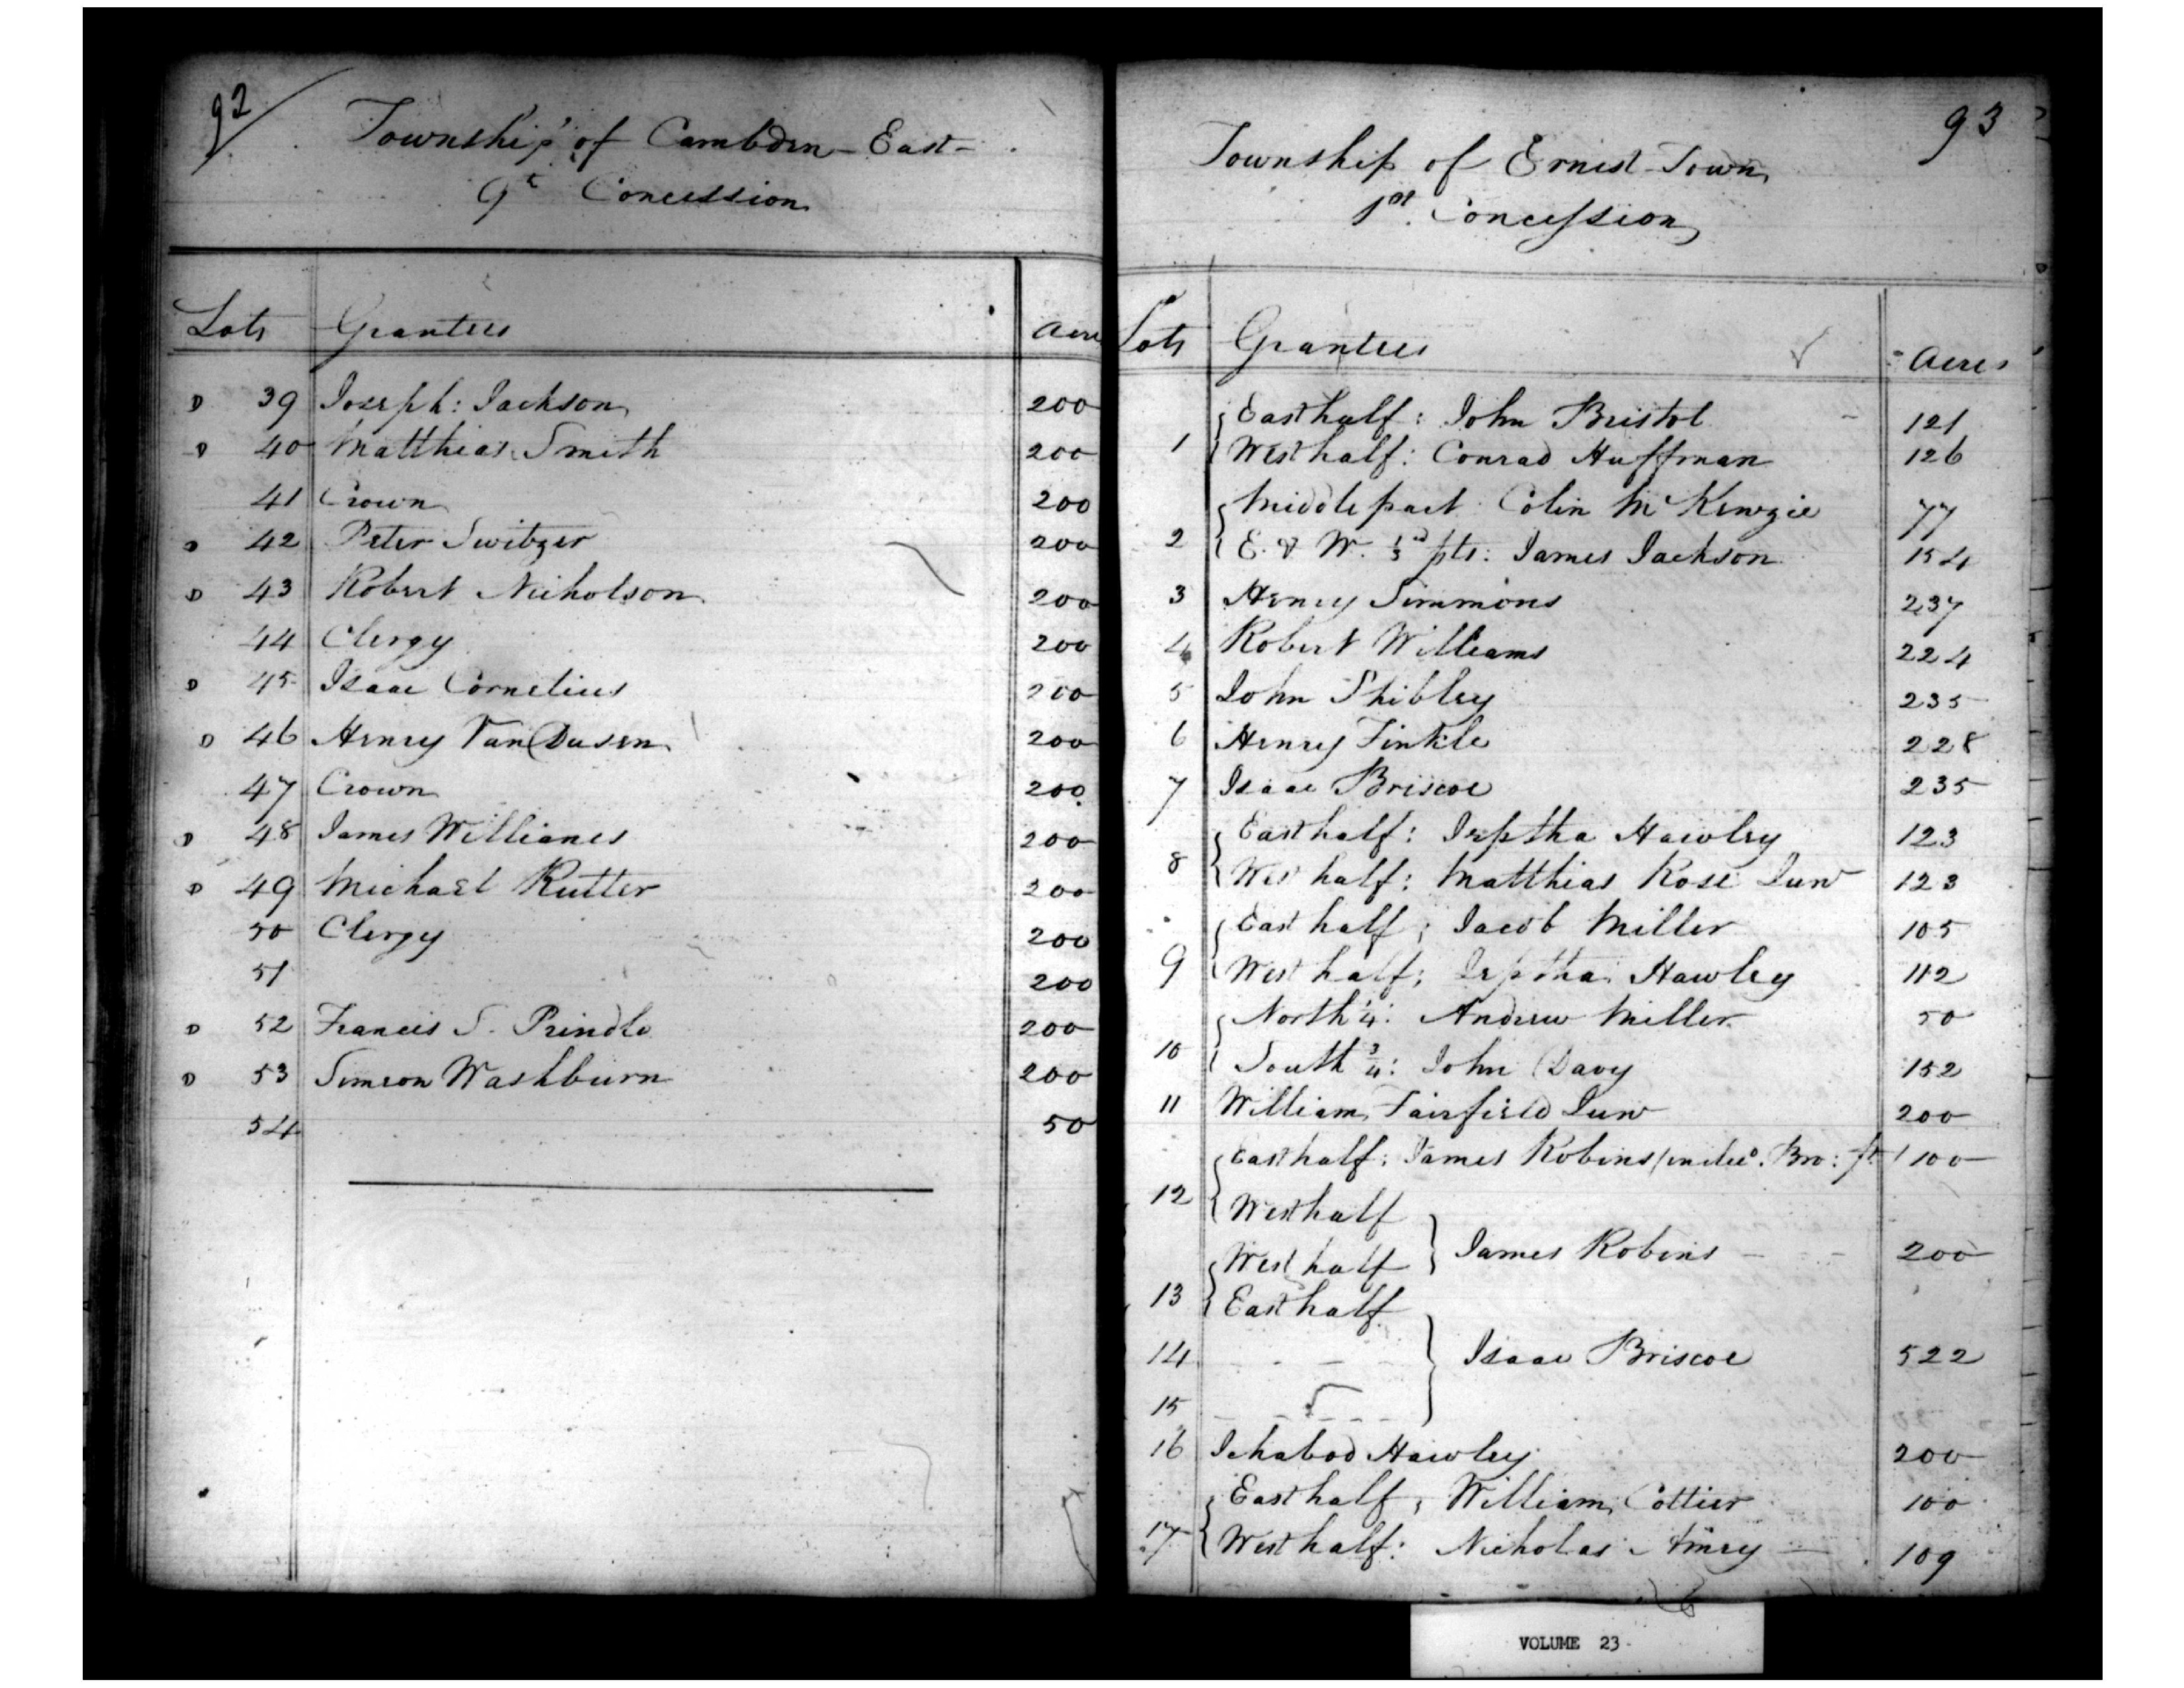 92
Township of Cambden East
9th Concession
Lots Grantees Acre
D 39 Joseph Jackson 200
D 40 Matthias Smith 200
41 Crown 200
D 42 Peter Switzer 200
D 43 Robert Nicholson 200
44 Clergy 200
D 45 Isaac Cornelius 200
D 46 Henry Van Dusen 200
47 Crown 200
D 48 James Williams 200
D 49 Michael Rutter 200
50 Clergy 200
51 200
D 52 Francis S. Prindle 200
D 53 Simeon Washburn 200
54 50
93
Township of Ernest Town
1st Concession
Lots Grantees Acres
East half: John Bristol 121
1 West half: Conrad Huffman 126
Middle part Colin McKenzie 77
2 E. & W. 1/3rd pts: James Jackson 154
3 Henry Simmons 237
4 Robert Williams 224
5 John Shibley 235
6 Henry Finkle 228
7 Isaac Briscoe 235
East half: Jeptha Hawley 123
8 West half: Matthias Rose Junr 123
East half; Jacob Miller 105
9 West half; Jeptha Hawley 112
North 1/4: Andrew Miller 50
10 South 3/4: John Davy 152
11 William Fairfield Junr 200
East half: James Robins 100
12 West half
West half James Robins 200
13 East half
14 Isaac Briscoe 522
15
16 Ichabod Hawley 200
East half; William Cottier 100
17 West half: Nicholas Amey 109
VOLUME 23